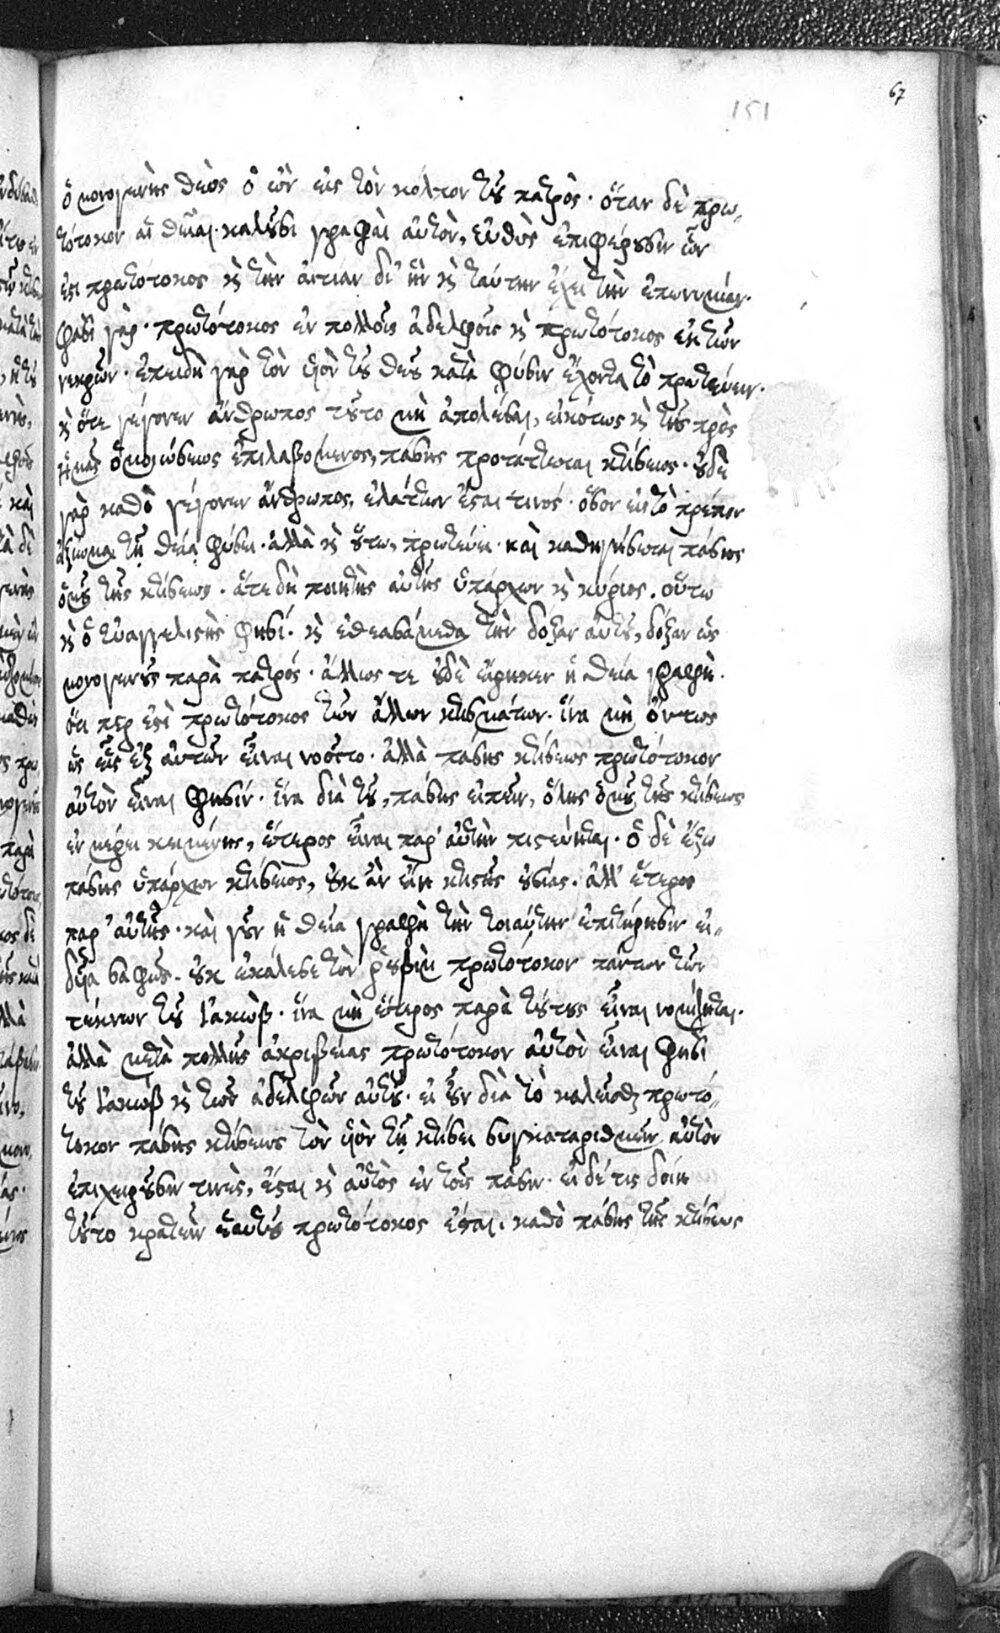 151
67
ὁ μονογενὴς θεὸς ὁ ὢν εἰς τὸν κόλπον τοῦ πατρὸς· ὅταν δὲ πρω-
τότοκον αἱ θεῖαι καλοῦσι γραφαὶ αὐτὸν, εὐθὺς ἐπιφέρουσιν ὧν
ἐστι πρωτότοκος κ τὴν αἰτίαν δι' ἣν κ ταύτην ἔχει τὴν ἐπωνυμίαν.
φασὶ γὰρ· πρωτότοκος ἐν πολλοῖς ἀδελφοῖς κ πρωτότοκος ἐκ τῶν
νεκρῶν· ἐπειδὴ γὰρ τὸν υἱὸν τοῦ θεοῦ κατὰ φύσιν ἔχοντα τὸ πρωτεύειν.
κ ὅτε γέγονεν ἄνθρωπος τοῦτο μὴ ἀπολέσαι, εἰκότως κ τῆς πρὸς
ἡμᾶς ὁμοιώσεως ἐπιλαβόμενος, πάσης προτάττεται κτίσεως· οὐδὲ
γὰρ καθὸ γέγονεν ἄνθρωπος, ἐλάττων ἔσται τινός· ὅσον εἰς τὸ πρέπον
ἀξίωμα τῇ θείᾳ φύσει· ἀλλὰ κ οὕτω, πρωτεύει· καὶ καθηγήσεται πάσης
ὁμοῦ τῆς κτίσεως· ἅτε δὴ ποιητὴς αὐτῆς ὑπάρχων κ κύριος. οὕτω
κ ὁ εὐαγγελιστὴς φησί· κ ἐθεασάμεθα τὴν δόξαν αὐτοῦ, δόξαν ὡς
μονογενοῦς παρὰ πατρός· ἄλλως τε οὐδὲ εἴρηκεν ἡ θεία γραφὴ.
ὅτι περ ἐστὶ πρωτότοκος τῶν ἄλλων κτισμάτων· ἵνα μὴ ὄντως
ὡς εἷς ἐξ αὐτῶν εἶναι νοοῖτο· ἀλλὰ πάσης κτίσεως πρωτότοκον
αὐτὸν εἶναι φησίν· ἵνα διὰ τοῦ, πάσης εἰπεῖν, ὅλης ὁμοῦ τῆς κτίσεως
ἐν μέρει κειμένης, ἕτερος εἶναι παρ' αὐτὴν πιστεύηται· ὁ δὲ ἔξω
πάσης ὑπάρχων κτίσεως, οὐκ ἂν εἴη κτιστῆς οὐσίας· ἀλλ' ἕτερος
παρ' αὐτῆς· καὶ γοῦν ἡ θεία γραφὴ τὴν τοιαύτην ἐπιτήρησιν εἰ-
δυῖα σαφῶς. οὐκ ἐκάλεσε τὸν ῥουβὶμ πρωτότοκον πάντων τῶν
τέκνων τοῦ Ἰακὼβ· ἵνα μὴ ἕτερος παρὰ τούτους εἶναι νομίζηται.
ἀλλὰ μετὰ πολλῆς ἀκριβείας πρωτότοκον αὐτὸν εἶναι φησὶ
τοῦ Ἰακὼβ κ τῶν ἀδελφῶν αὐτοῦ· εἰ οὖν διὰ τὸ καλεῖσθαι πρωτό-
τοκον πάσης κτίσεως τὸν υἱὸν τῇ κτίσει συγκαταριθμεῖν αὐτὸν
ἐπιχειροῦσιν τινὲς, ἔσται κ αὐτὸς ἐν τοῖς πᾶσιν· εἰ δέ τις δοίη
τοῦτο κρατεῖν ἑαυτοῦ πρωτότοκος ἔσται· καθὸ πάσης τῆς κτίσεως